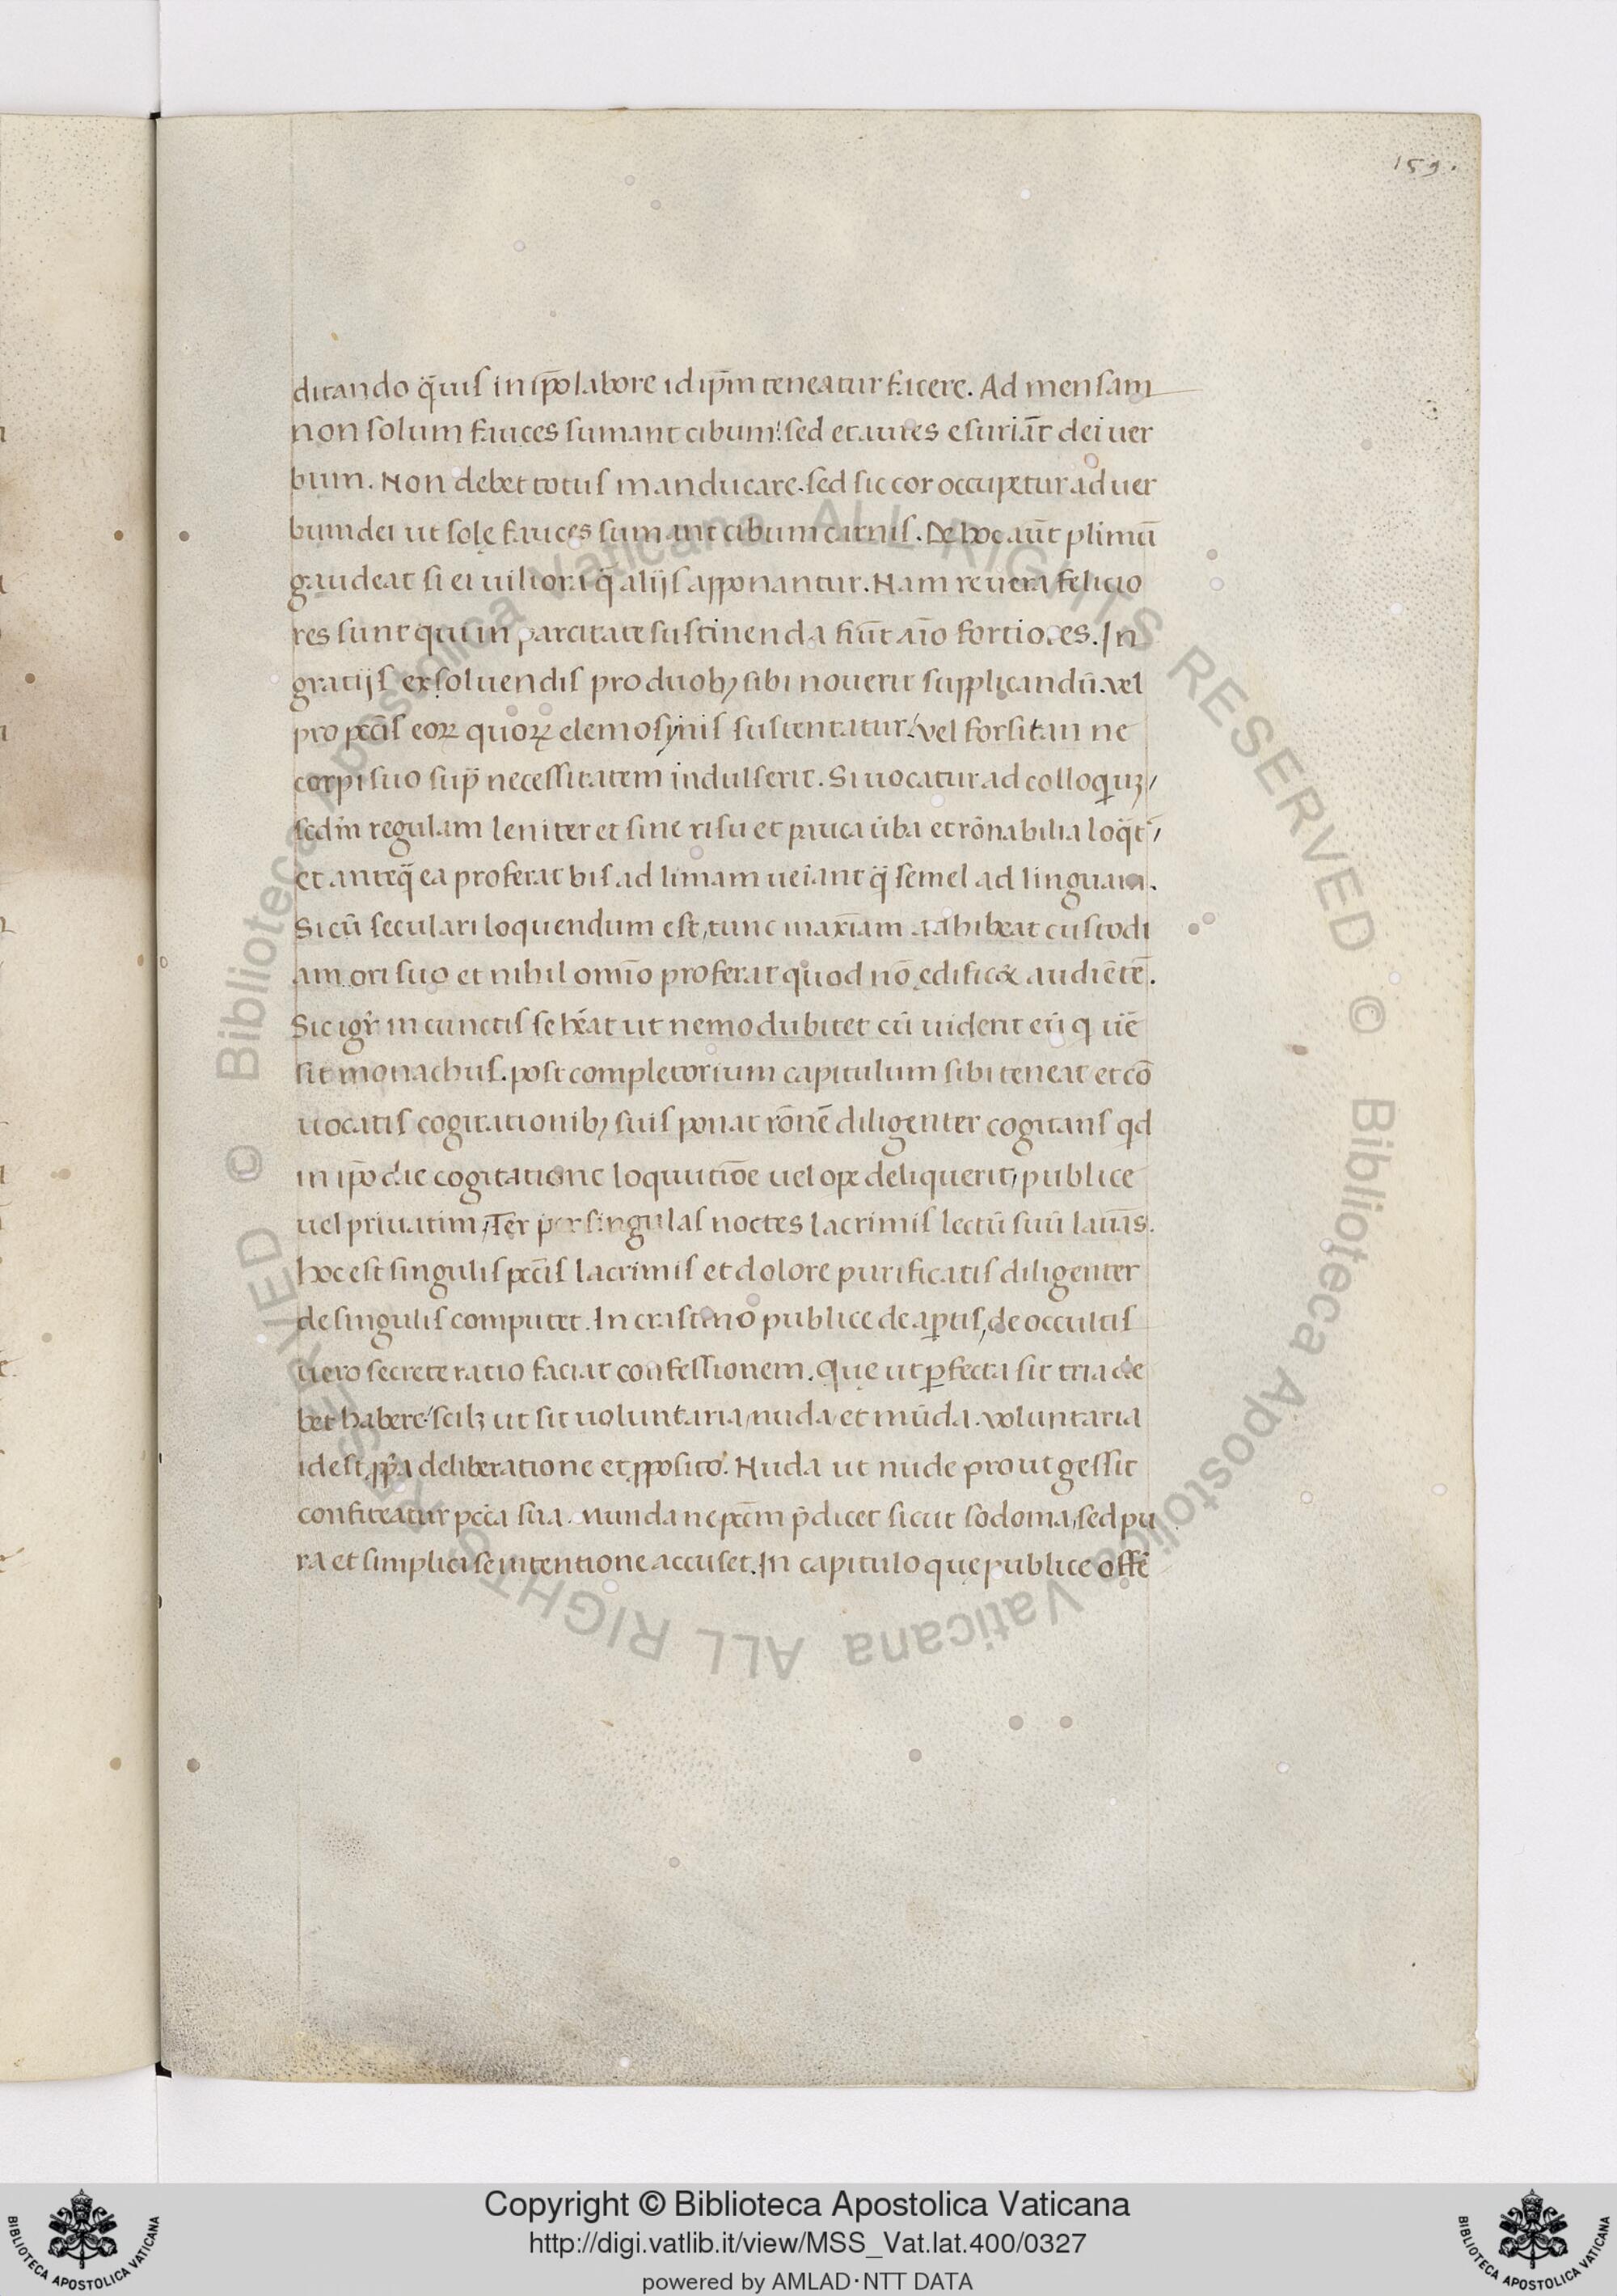 159.
ditando q̃uis in ip̃o labore id ip̃m teneatur facere. Ad mensam
non solum fauces sumant cibum: sed et aures esuriãt dei uer
bum. Non debet totus manducare. sed sic cor occupetur ad uer
bum dei ut solę fauces sumant cibum carnis. De hoc aũt plimũ
gaudeat si ei uiliora q̃ alijs apponantur. Nam reuera felicio
res sunt qui in parcitate sustinenda fiũt aĩo fortiores. In
gratijs exsoluendis pro duobꝫ sibi nouerit supplicandũ. vel
pro pctĩs eoꝝ quoꝝ elemosynis sustentatur: vel forsitan ne
corpi suo sup̃ necessitatem indulserit. Si uocatur ad colloquiuꝫ/
sedm̃ regulam leniter et sine risu et pauca ũba et rõnabilia loq̃t᷑/
et anteq̃ ea proferat bis ad limam ueĩant q̃ semel ad linguam.
Si cũ seculari loquendum est, tunc maxĩam adhibeat custodi
am ori suo et nihil omĩo proferat quod nõ edificet audiẽtẽ.
Sic igr̃ in cunctis se hẽat ut nemo dubitet cũ uiderit eũ q uẽ
sit monachus. post completorium capitulum sibi teneat et cõ
uocatis cogitationibꝫ suis ponat rõnẽ diligenter cogitans qd
in ip̃o die cogitatione loquutiõe uel ope deliquerit, publice
uel priuatim, Ter per singulas noctes lacrimis lectũ suũ lauãs.
hoc est singulis pctĩs lacrimis et dolore purificatis diligenter
de singulis computet. In crastino publice de aꝑtis, de occultis
uero secrete ratio faciat confessionem. Quę ut ꝑfecta sit tria de
bet habere: scilꝫ ut sit uoluntaria/ nuda/ et mũda. voluntaria
id est ꝓp̃a deliberatione et ꝓposito. Nuda ut nude prout gessit
confiteatur pctã sua. Munda ne pctm̃ p̃dicet sicut sodoma, sed pu
ra et simplici se intentione accuset. In capitulo quę publice offẽ
Copyright © Biblioteca Apostolica Vaticana
http://digi.vatlib.it/view/MSS_Vat.lat.400/0327
powered by AMLAD·NTT DATA
BIBLIOTECA APOSTOLICA VATICANA
BIBLIOTECA APOSTOLICA VATICANA
© Biblioteca Apostolica Vaticana ALL RIGHTS RESERVED © Biblioteca Apostolica Vaticana ALL RIGHTS RESERVED